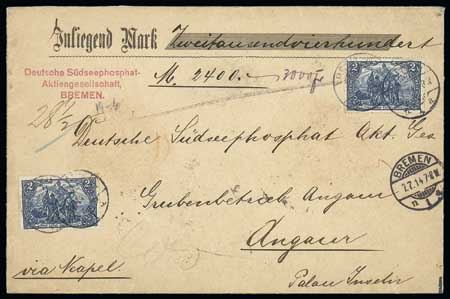 Inliegend Mark Zweitausendvierhundert
M. 2400.- 3000 f
Deutsche Südseephosphat-
Aktiengesellschaft,
BREMEN.
28½
Deutsche Südseephosphat Akt. Ges
BREMEN
2.7.14.7-8N.
Grubenbetrieb Angaur
2
2
Angaur
via Neapel.
Palau Inseln